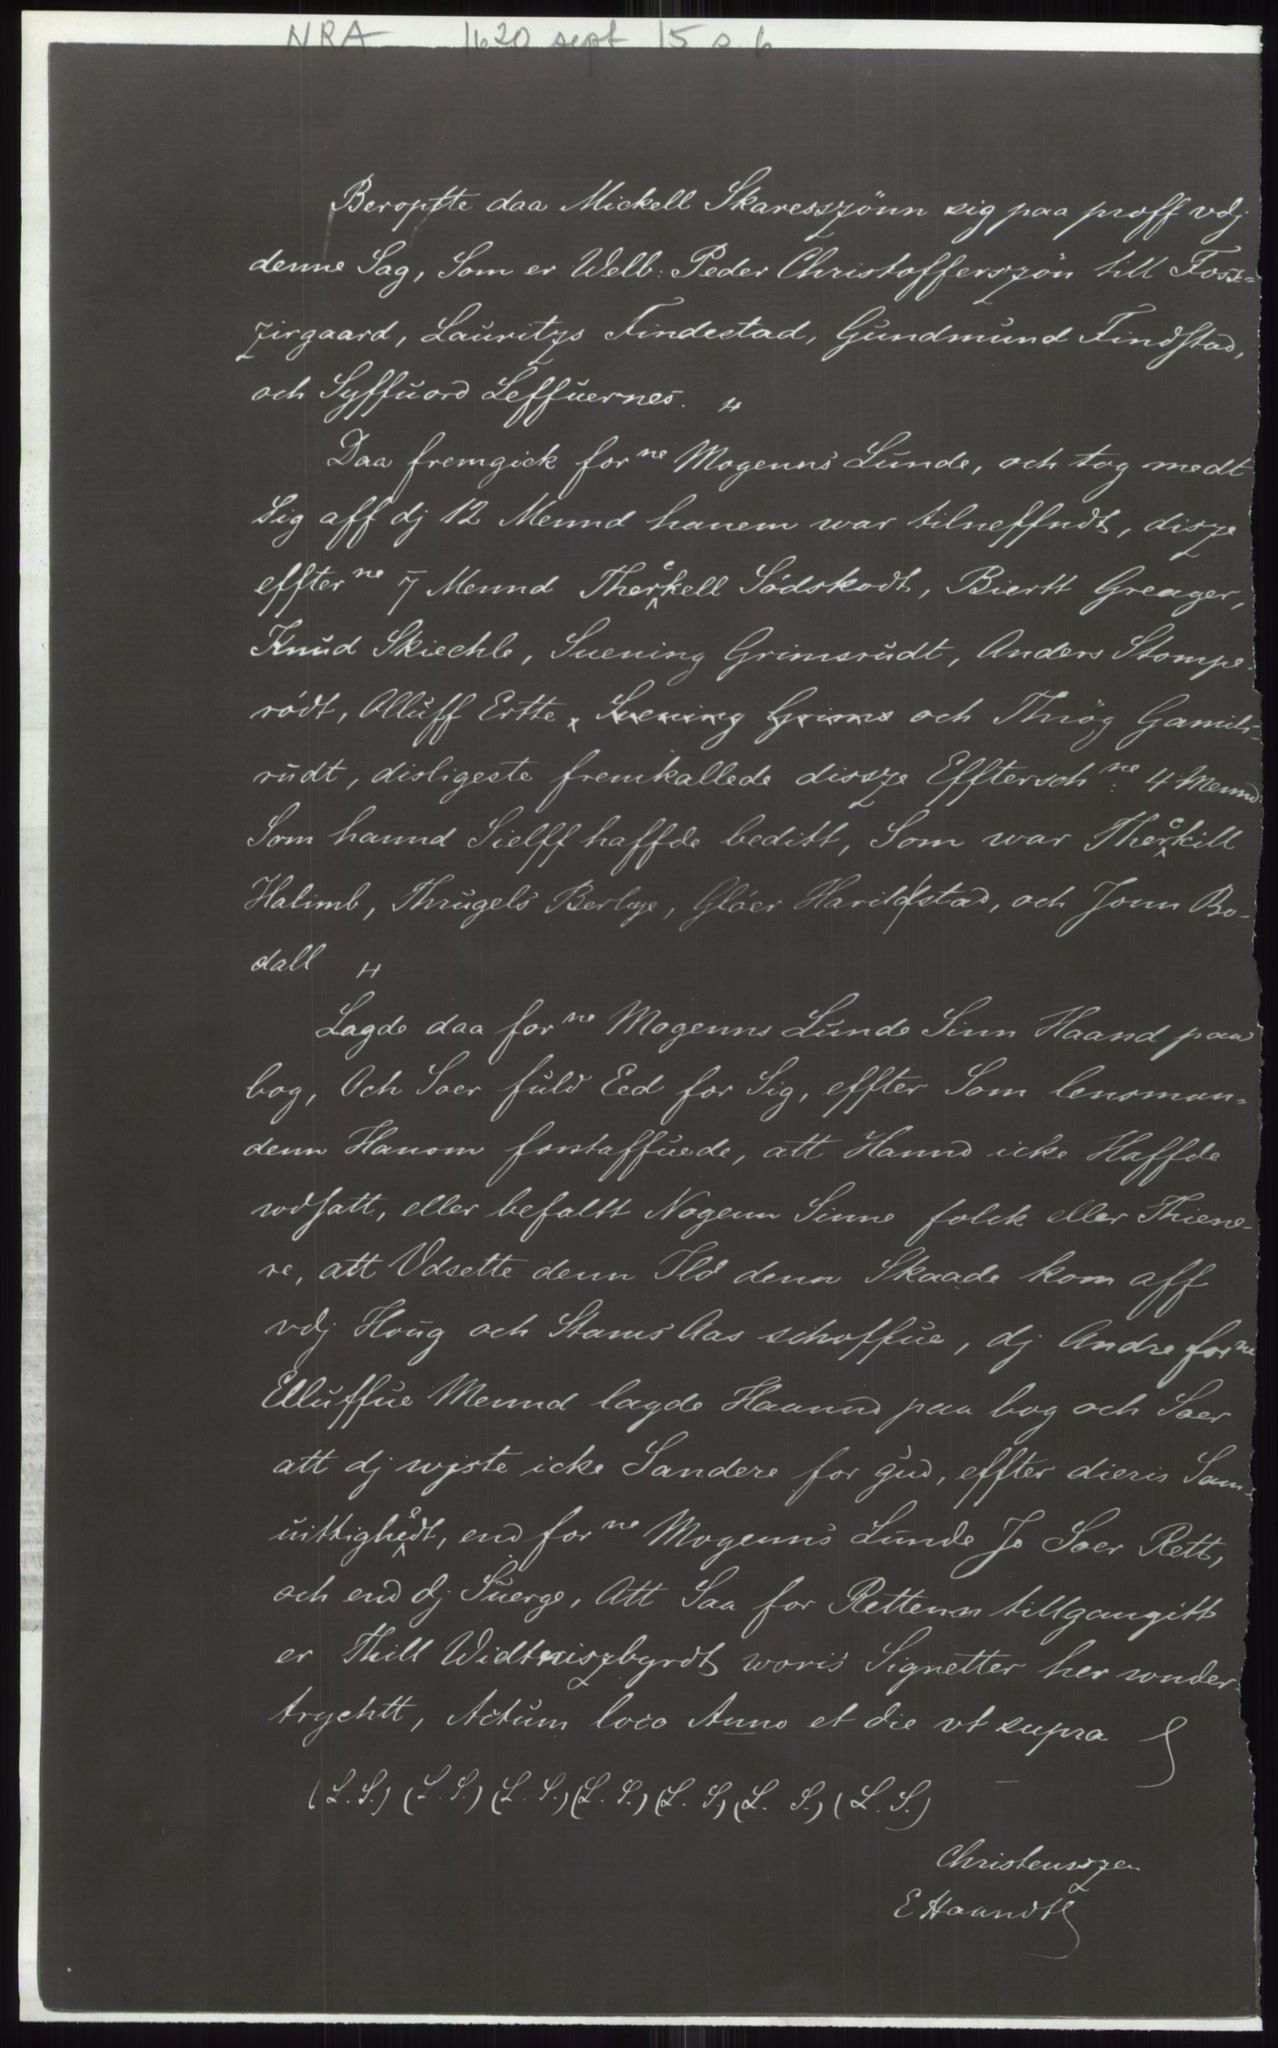 NRA 1620 sept 15 s. 6
Beropte daa Mickell Skaresszönn sig paa proff vdj
denne Sag, Som er Welb: Peder Christofferszön till Fosz-
zirgaard, Lauritzs Findestad, Gundmund Findstad,
och Syffuord Leffuernes.
Daa fremgick for ne Mogenns Lunde, och tog medt
Sig aff dj 12 Mennd hanem war tilneffndt, disze
effter ne 7 Mennd Therkell Södskodt, Biertt Greager,
Knud Skiechle, Suening Grimsrudt, Anders Stompe-
rödt, Olluff Ertte, Suening Grims och Thrög Gamels-
rudt, disligeste fremkallede dissze Effterschne: 4 Mennd
Som hannd Sielff haffde beditt, Som war Therkill
Halimb, Thrugels Berbye, Glöer Harildstad, och Jonn Bo-
dall
Lagde daa for ne Mogenns Lunde Sinn Haand paa
bog, Och Soer fuld Eed for Sig, effter Som lensman-
denn Hanom forstaffuede, att Hannd icke Haffde
wdsatt, eller befaltt Nogenn Sinne folck eller Thiene-
re, att Vdsette denn Ild denn Skaade kom aff
vdj Houg och Stams Aas schoffue, dj Andre for ne
Elluffue Mennd lagde Haannd paa bog och Soer
att dj wiste icke Sandere for gud, effter dieris Sam-
uittighedt, end for ne Mogenns Lunde Jo Soer Rett,
och end dj Suerge, Att Saa for Rettenn tillgangitt
er Thill Widtniszbyrdt woris Signetter her wnder-
trychtt, Actum loco Anno et die vt supra
(L.S.) (L.S.) (L.S.) (L.S.) (L.S.) (L.S.) (L.S.)
Christennszen
E Haandt